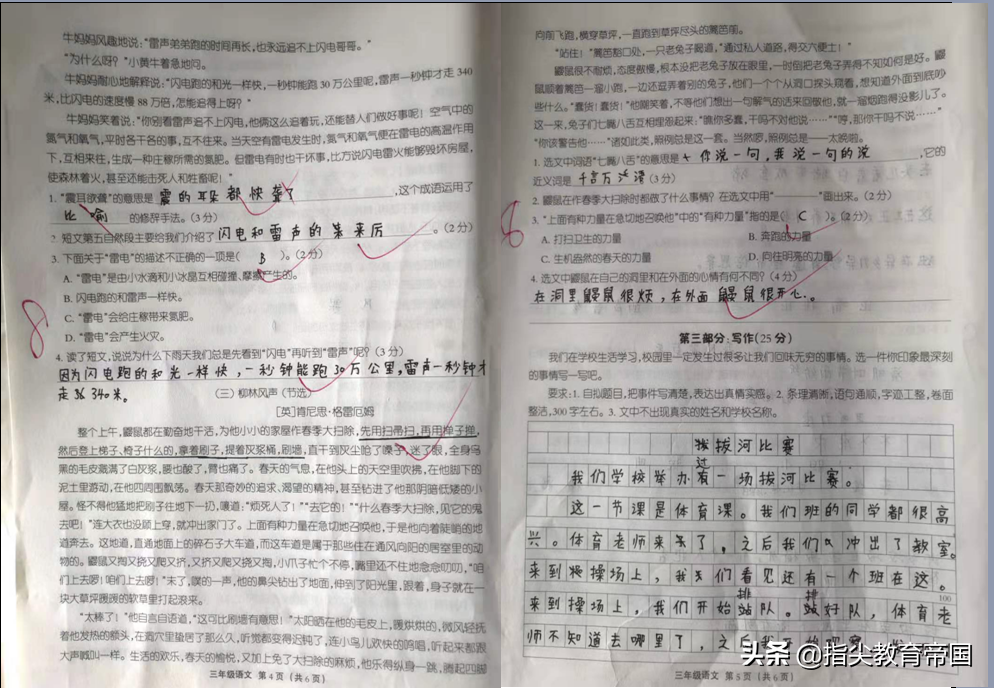 牛妈妈风趣地说：“雷声弟弟跑的时间再长，也永远追不上闪电哥哥。”
“为什么呀？”小黄牛着急地问。
牛妈妈耐心地解释说：“闪电跑的和光一样快，一秒钟能跑30万公里呢，雷声一秒钟才走340
米，比闪电的速度慢88万倍，怎能追得上呀？”
牛妈妈笑着说：“你别看雷声追不上闪电，他俩这么追着玩，还能替人们做好事呢！空气中的
氮气和氧气，平时各干各的事，互不往来。当天空有雷电发生时，氮气和氧气便在雷电的高温作用
下，互相来往，生成一种庄稼所需的氮肥。但雷电有时也干坏事，比方说闪电雷火能够毁坏房屋，
使森林着火，甚至还能击死人和牲畜呢！”
1. “震耳欲聋”的意思是 震的耳朵都快聋了 ，这个成语运用了
比喻 的修辞手法。（3分）
2. 短文第五自然段主要给我们介绍了 闪电和雷声的 来历 。（2分）
3. 下面关于“雷电”的描述不正确的一项是（ B ）。（2分）
A. “雷电”是由小水滴和小冰晶互相碰撞、摩擦产生的。
B. 闪电跑的和雷声一样快。
C. “雷电”会给庄稼带来氮肥。
D. “雷电”会产生火灾。
8
4. 读了短文，说说为什么下雨天我们总是先看到“闪电”再听到“雷声”呢？（3分）
因为闪电跑的和光一样快，一秒钟能跑30万公里，雷声一秒钟才
走 340米。
（三）柳林风声（节选）
[英]肯尼思·格雷厄姆
整个上午，鼹鼠都在勤奋地干活，为他小小的家屋作春季大扫除，先用扫帚扫，再用掸子掸，
然后登上梯子、椅子什么的，拿着刷子，提着灰浆桶，刷墙，直干到灰尘呛了嗓子，迷了眼，全身乌
黑的毛皮溅满了白灰浆，腰也酸了，臂也痛了。春天的气息，在他头上的天空里吹拂，在他脚下的
泥土里游动，在他四周围飘荡。春天那奇妙的追求、渴望的精神，甚至钻进了他那阴暗低矮的小
屋。怪不得他猛地把刷子往地下一扔，嚷道：“烦死人了！”“去它的！”“什么春季大扫除，见它的鬼
去吧！”连大衣也没顾上穿，就冲出家门了。上面有种力量在急切地召唤他，于是他向着陡峭的地
道奔去。这地道，直通地面上的碎石子大车道，而这车道是属于那些住在通风向阳的居室里的动
物的。鼹鼠又掏又挠又爬又挤，又挤又爬又挠又掏，小爪子忙个不停，嘴里还不住地念念叨叨，“咱
们上去啰！咱们上去啰！”末了，噗的一声，他的鼻尖钻出了地面，伸到了阳光里，跟着，身子就在一
块大草坪暖暖的软草里打起滚来。
“太棒了！”他自言自语道，“这可比刷墙有意思！”太阳晒在他的毛皮上，暖烘烘的，微风轻抚
着他发热的额头，在洞穴里蛰居了那么久，听觉都变得迟钝了，连小鸟儿欢快的鸣唱，听起来都跟
大声喊叫一样。生活的欢乐，春天的愉悦，又加上免了大扫除的麻烦，他乐得纵身一跳，腾起四脚
三年级语文 第4页（共6页）
向前飞跑，横穿草坪，一直跑到草坪尽头的篱笆前。
“站住！”篱笆豁口处，一只老兔子喝道，“通过私人道路，得交六便士！”
鼹鼠很不耐烦，态度傲慢，根本没把老兔子放在眼里，一时倒把老兔子弄得不知如何是好。鼹
鼠顺着篱笆一溜小跑，一边还逗弄着别的兔子，他们一个个从洞口探头窥看，想知道外面到底吵
些什么。“蠢货！蠢货！”他嘲笑着，不等他们想出一句解气的话来回敬他，就一溜烟跑得没影儿了。
这一来，兔子们七嘴八舌互相埋怨起来：“瞧你多蠢，干吗不对他说……”“哼，那你干吗不说……”
“你该警告他……”诸如此类，照例总是这一套。当然啰，照例总是——太晚啦。
1. 选文中词语“七嘴八舌”的意思是 你说一句，我说一句的说 ，它的
近义词是 （3分）
2. 鼹鼠在作春季大扫除时都做了什么事情？在选文中用“ ”画出来。（2分）
8
3. “上面有种力量在急切地召唤他”中的“有种力量”指的是（ C ）。（2分）
A. 打扫卫生的力量
B. 奔跑的力量
C. 生机盎然的春天的力量
D. 向往明亮的力量
4. 选文中鼹鼠在自己的洞里和在外面的心情有何不同？（4分）
在洞里鼹鼠很烦，在外面鼹鼠很开心。
第三部分：写作（25分）
我们在学校生活学习，校园里一定发生过很多让我们回味无穷的事情。选一件你印象最深刻
的事情写一写吧。
要求：1. 自拟题目，把事件写清楚，表达出真情实感。2. 条理清晰，语句通顺，字迹工整，卷面
整洁，300字左右。3. 文中不出现真实的姓名和学校名称。
拔河比赛
我们学校举办过一场拔河比赛。
这一节课是体育课。我们班的同学都很高
兴。体育老师来了，之后我们 冲出了教室。
来到操场上，我们看见还有一个班在这。
100
来到操场上，我们开始排队。排好队，体育老
师不知道去哪里了，之后我
三年级语文 第5页（共6页）
头条 @指尖教育帝国